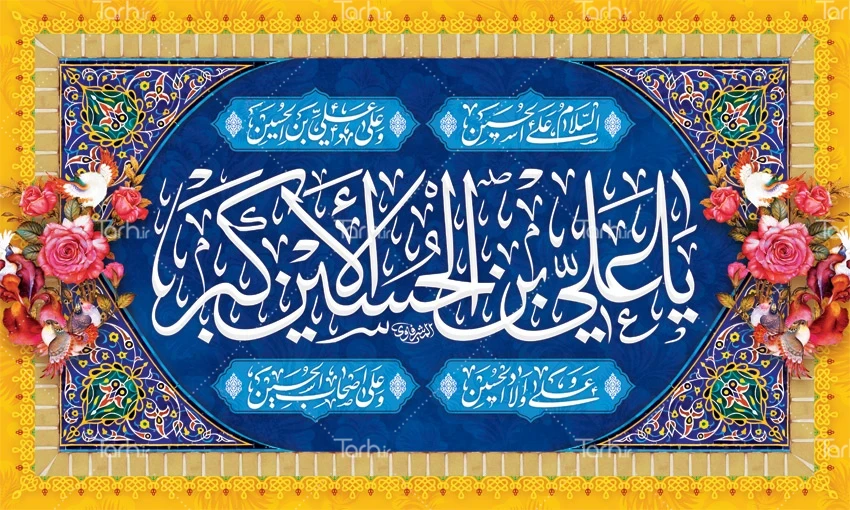 السلام علی الحسین
و علی علی بن الحسین
یا علی بن الحسین الأکبر
و علی اولاد الحسین
و علی اصحاب الحسین
Tarh.ir